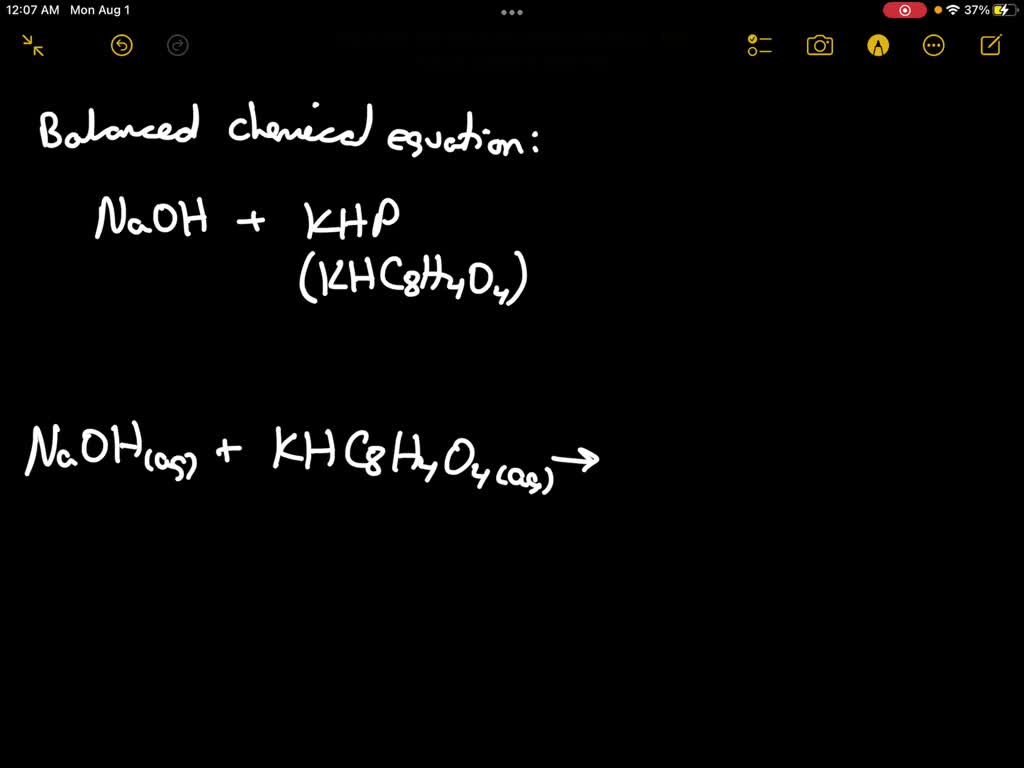 12:07 AM Mon Aug 1
37%
Balanced chemical equation:
NaOH + KHP
(KHC8H4O4)
NaOH(aq) + KHC8H4O4(aq) →